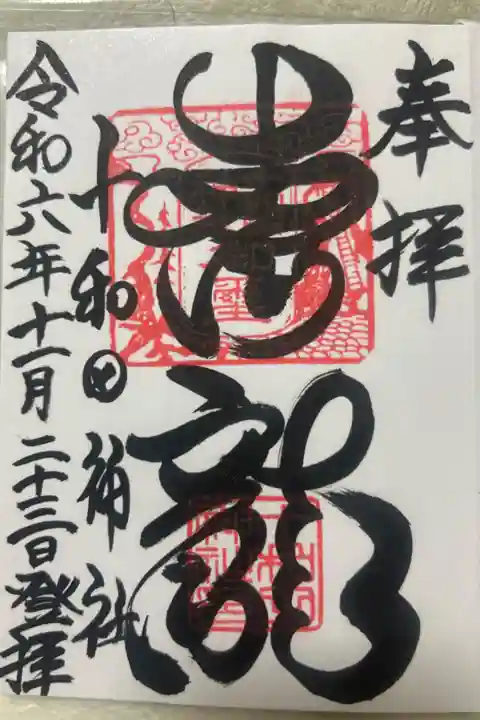 奉拝
青龍
十和田神社
令和六年十一月二十三日登拝